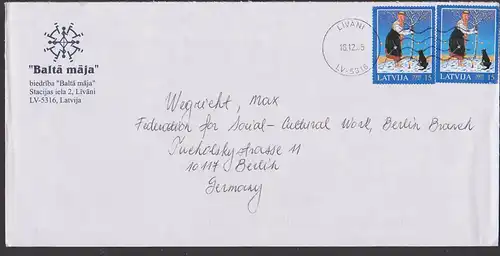 "Baltā māja"
biedrība "Baltā māja"
Stacijas iela 2, Līvāni
LV-5316, Latvija
LĪVĀNI
LV-5316
LATVIJA 15
LATVIJA 15
Wegricht, Max
Federation for Social-Cultural Work, Berlin Branch
Tucholskystrasse 11
10117 Berlin
Germany